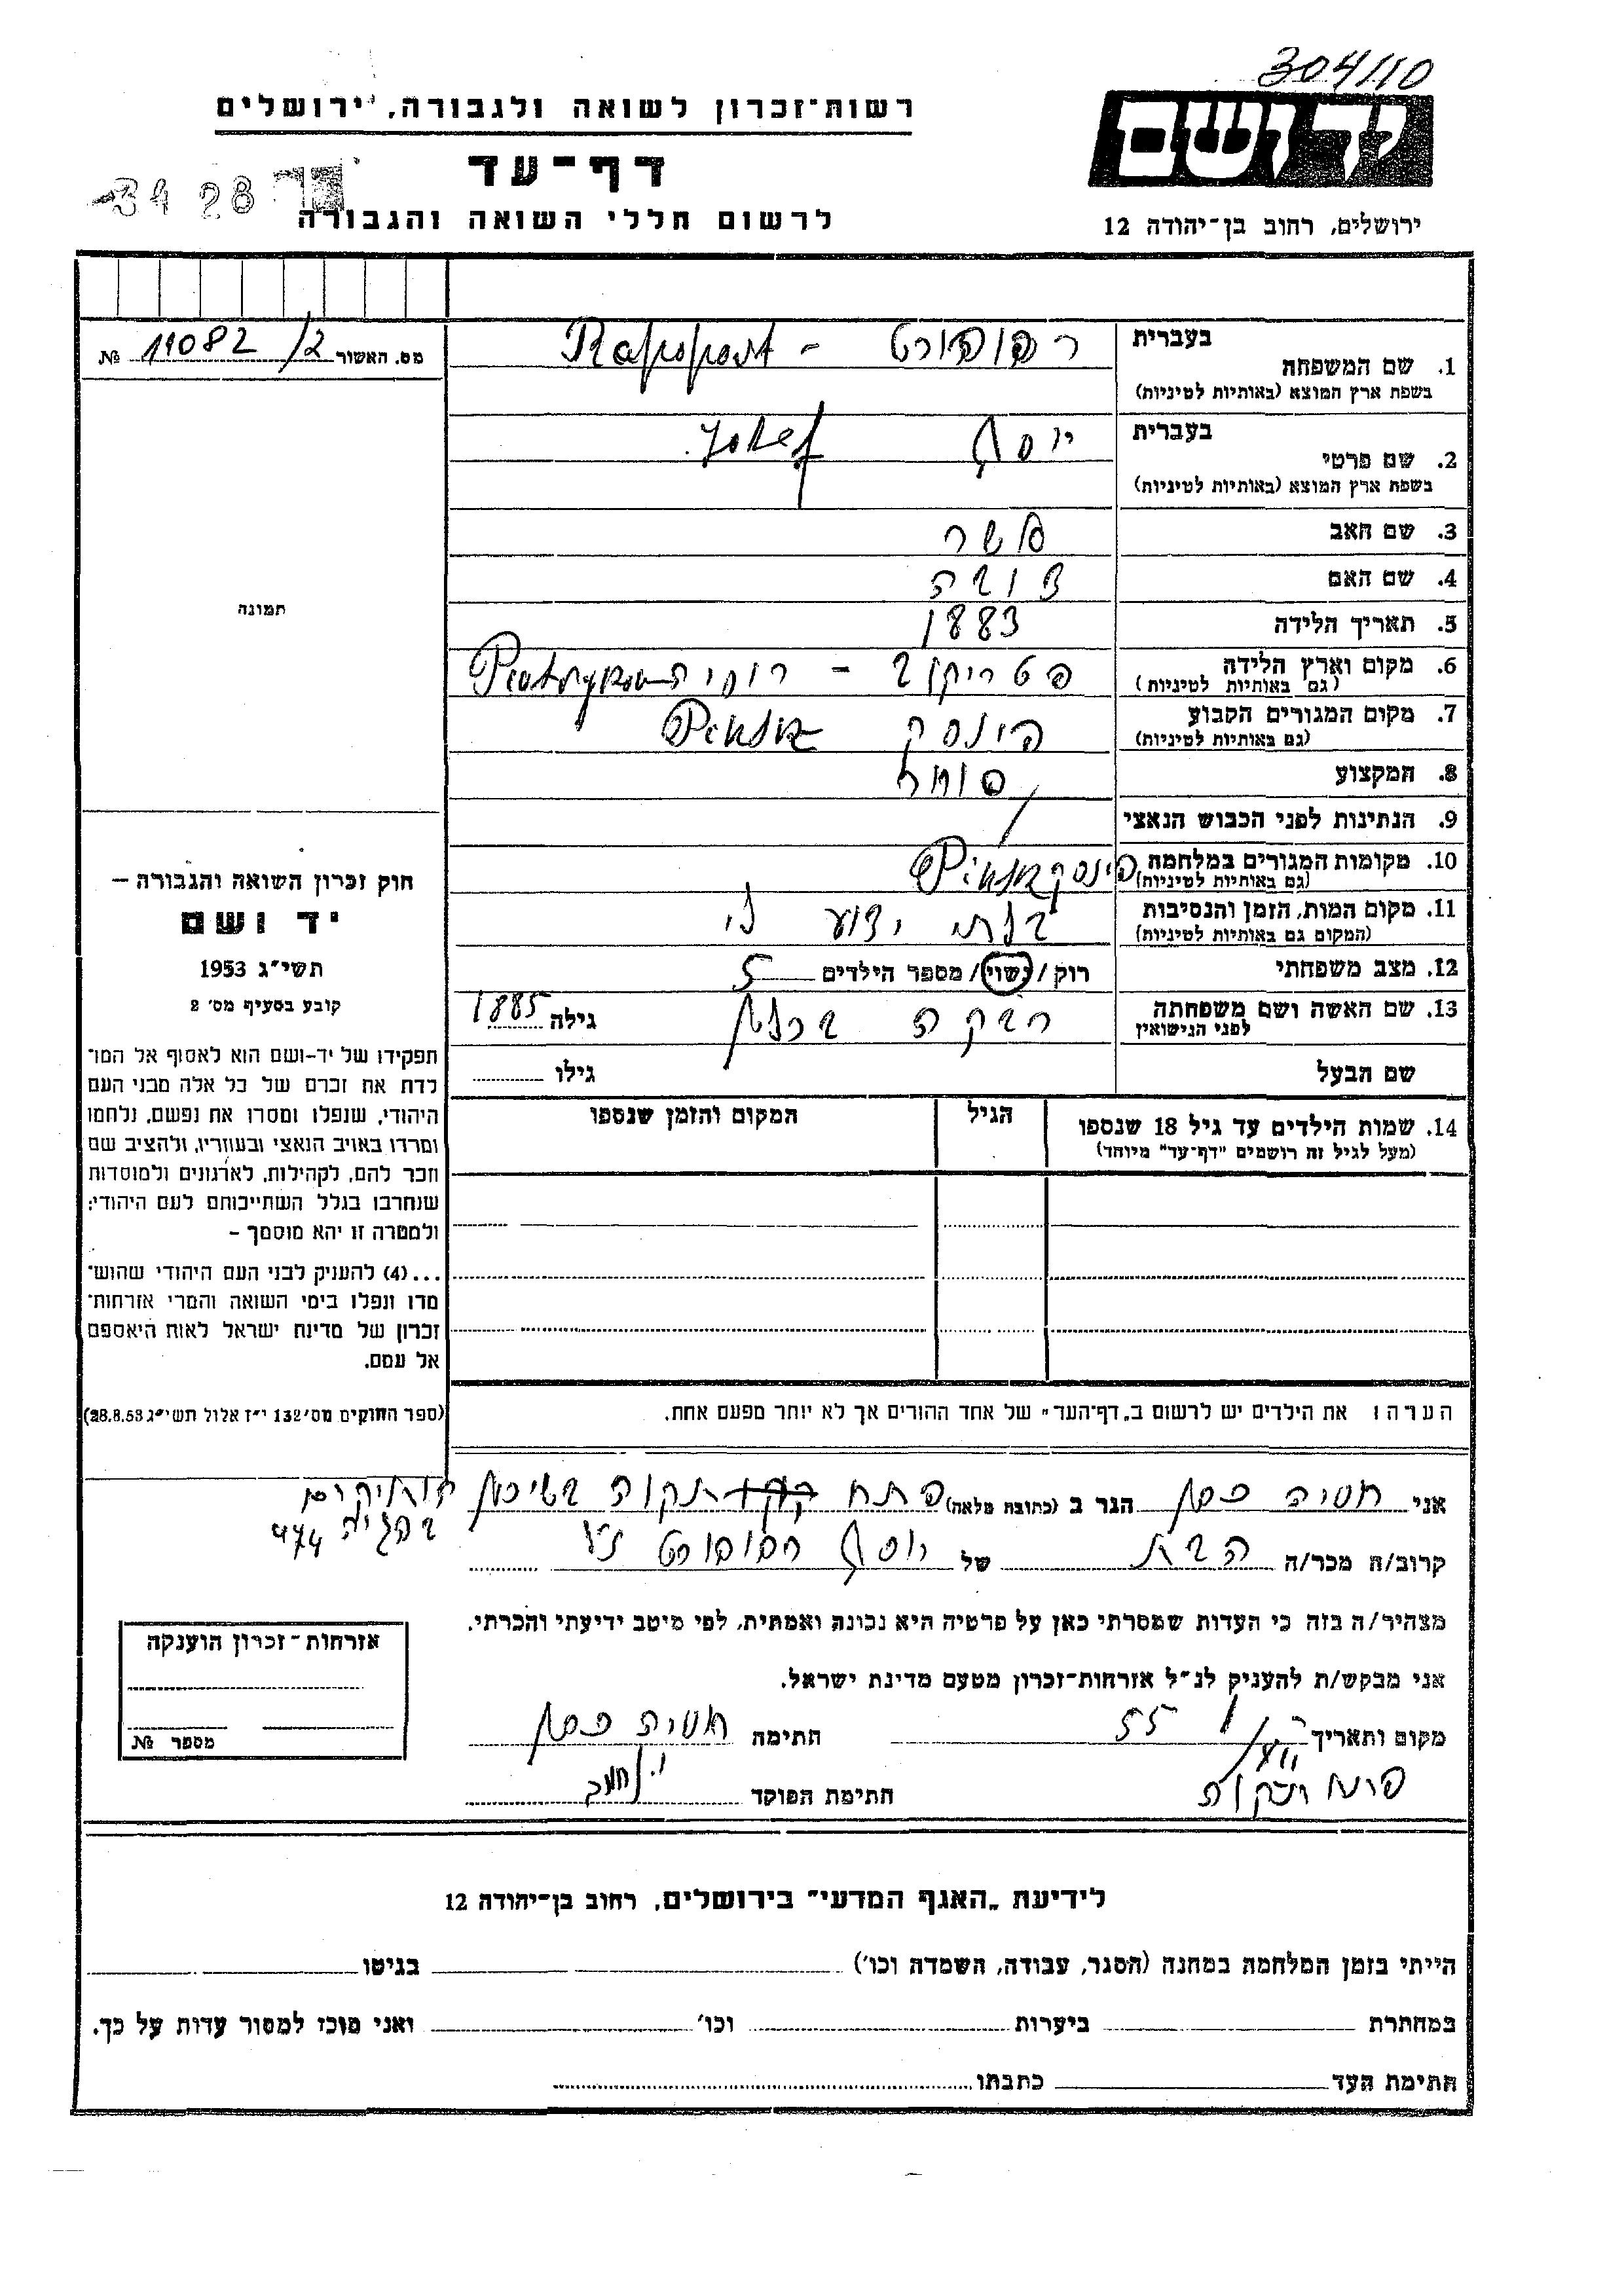 304/10
יד ושם
ירושלים, רחוב בן־יהודה 12
רשות־זכרון לשואה ולגבורה, ירושלים
דף־עד
לרשום חללי השואה והגבורה
3428
מס. האשור 11082/2 №
תמונה
1. שם המשפחה בעברית רפופורט - Rapoport
בשפת ארץ המוצא (באותיות לטיניות)
2. שם פרטי בעברית יוסף Josef
בשפת ארץ המוצא (באותיות לטיניות)
3. שם האב אשר
4. שם האם
5. תאריך הלידה 1883
6. מקום וארץ הלידה פטריקוב - רוסיה
(גם באותיות לטיניות)
7. מקום המגורים הקבוע פינסק Pinsk
(גם באותיות לטיניות)
8. המקצוע סוחר
9. הנתינות לפני הכבוש הנאצי
10. מקומות המגורים במלחמה פינסק Pinsk
(גם באותיות לטיניות)
11. מקום המות, הזמן והנסיבות בלתי ידוע לי
(המקום גם באותיות לטיניות)
12. מצב משפחתי רוק / נשוי / מספר הילדים 5
13. שם האשה ושם משפחתה לפני הנישואין רבקה גילה 1885
שם הבעל גילו
14. שמות הילדים עד גיל 18 שנספו הגיל המקום והזמן שנספו
(מעל לגיל זה רושמים "דף־עד" מיוחד)
הערה: את הילדים יש לרשום ב„דף־העד" של אחד ההורים אך לא יותר מפעם אחת.
חוק זכרון השואה והגבורה –
יד ושם
תשי״ג 1953
קובע בסעיף מס׳ 2
תפקידו של יד-ושם הוא לאסוף אל המו־
לדת את זכרם של כל אלה מבני העם
היהודי, שנפלו ומסרו את נפשם, נלחמו
ומרדו באויב הנאצי ובעוזריו, ולהציב שם
וזכר להם, לקהילות, לארגונים ולמוסדות
שנחרבו בגלל השתייכותם לעם היהודי;
ולמטרה זו יהא מוסמך –
...(4) להעניק לבני העם היהודי שהוש־
מדו ונפלו בימי השואה והמרי אזרחות־
זכרון של מדינת ישראל לאות היאספם
אל עמם.
(ספר החוקים מס׳ 132 י״ז אלול תשי״ג 28.8.53)
אני חסיה הגר ב (כתובת מלאה) פתח תקוה בשיכון
474
קרוב/ה מכר/ה הבת של יוסף רפופורט ז״ל
מצהיר/ה בזה כי העדות שמסרתי כאן על פרטיה היא נכונה ואמתית, לפי מיטב ידיעתי והכרתי.
אני מבקש/ת להעניק לנ״ל אזרחות־זכרון מטעם מדינת ישראל.
מקום ותאריך 55 חתימה חסיה
פתח תקוה חתימת הפוקד
אזרחות־זכרון הוענקה
מספר №
לידיעת „האגף המדעי" בירושלים, רחוב בן־יהודה 12
הייתי בזמן המלחמה במחנה (הסגר, עבודה, השמדה וכו׳) בגיטו
במחתרת ביערות וכו׳ ואני מוכן למסור עדות על כך.
חתימת העד כתבתו